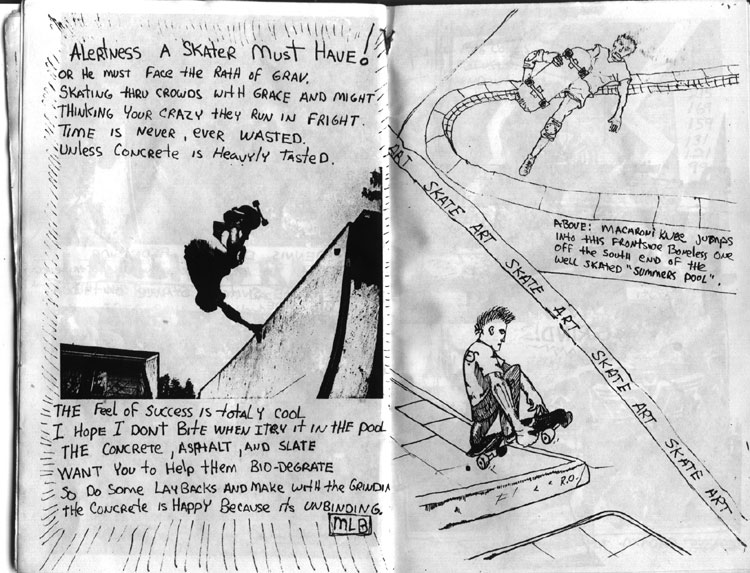 Alertness A Skater Must Have!
OR He must Face the Rath of Grav.
Skating thru Crowds with Grace and Might
Thinking Your Crazy they Run in Fright.
Time is Never, ever Wasted.
Unless Concrete is Heavyly Tasted.
The Feel of Success is totaly Cool
I Hope I Dont Bite when I try it in the Pool
The Concrete, Asphalt, and Slate
Want You to Help them Bio-Degrate
So Do Some Laybacks and Make with the Grindin
the Concrete is Happy Because its Unbinding.
MLB
ART SKATE ART SKATE ART SKATE ART SKATE ART SKATE ART
Above: Macaroni Knee jumps
into this Frontside Boneless One
off the South End of the
well skated "Summers Pool".
R.O.